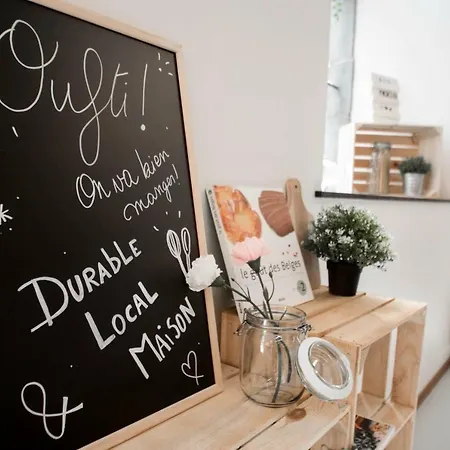 Oufti !
On va bien
manger !
DURABLE
LOCAL
MAISON
&
le goût des Belges